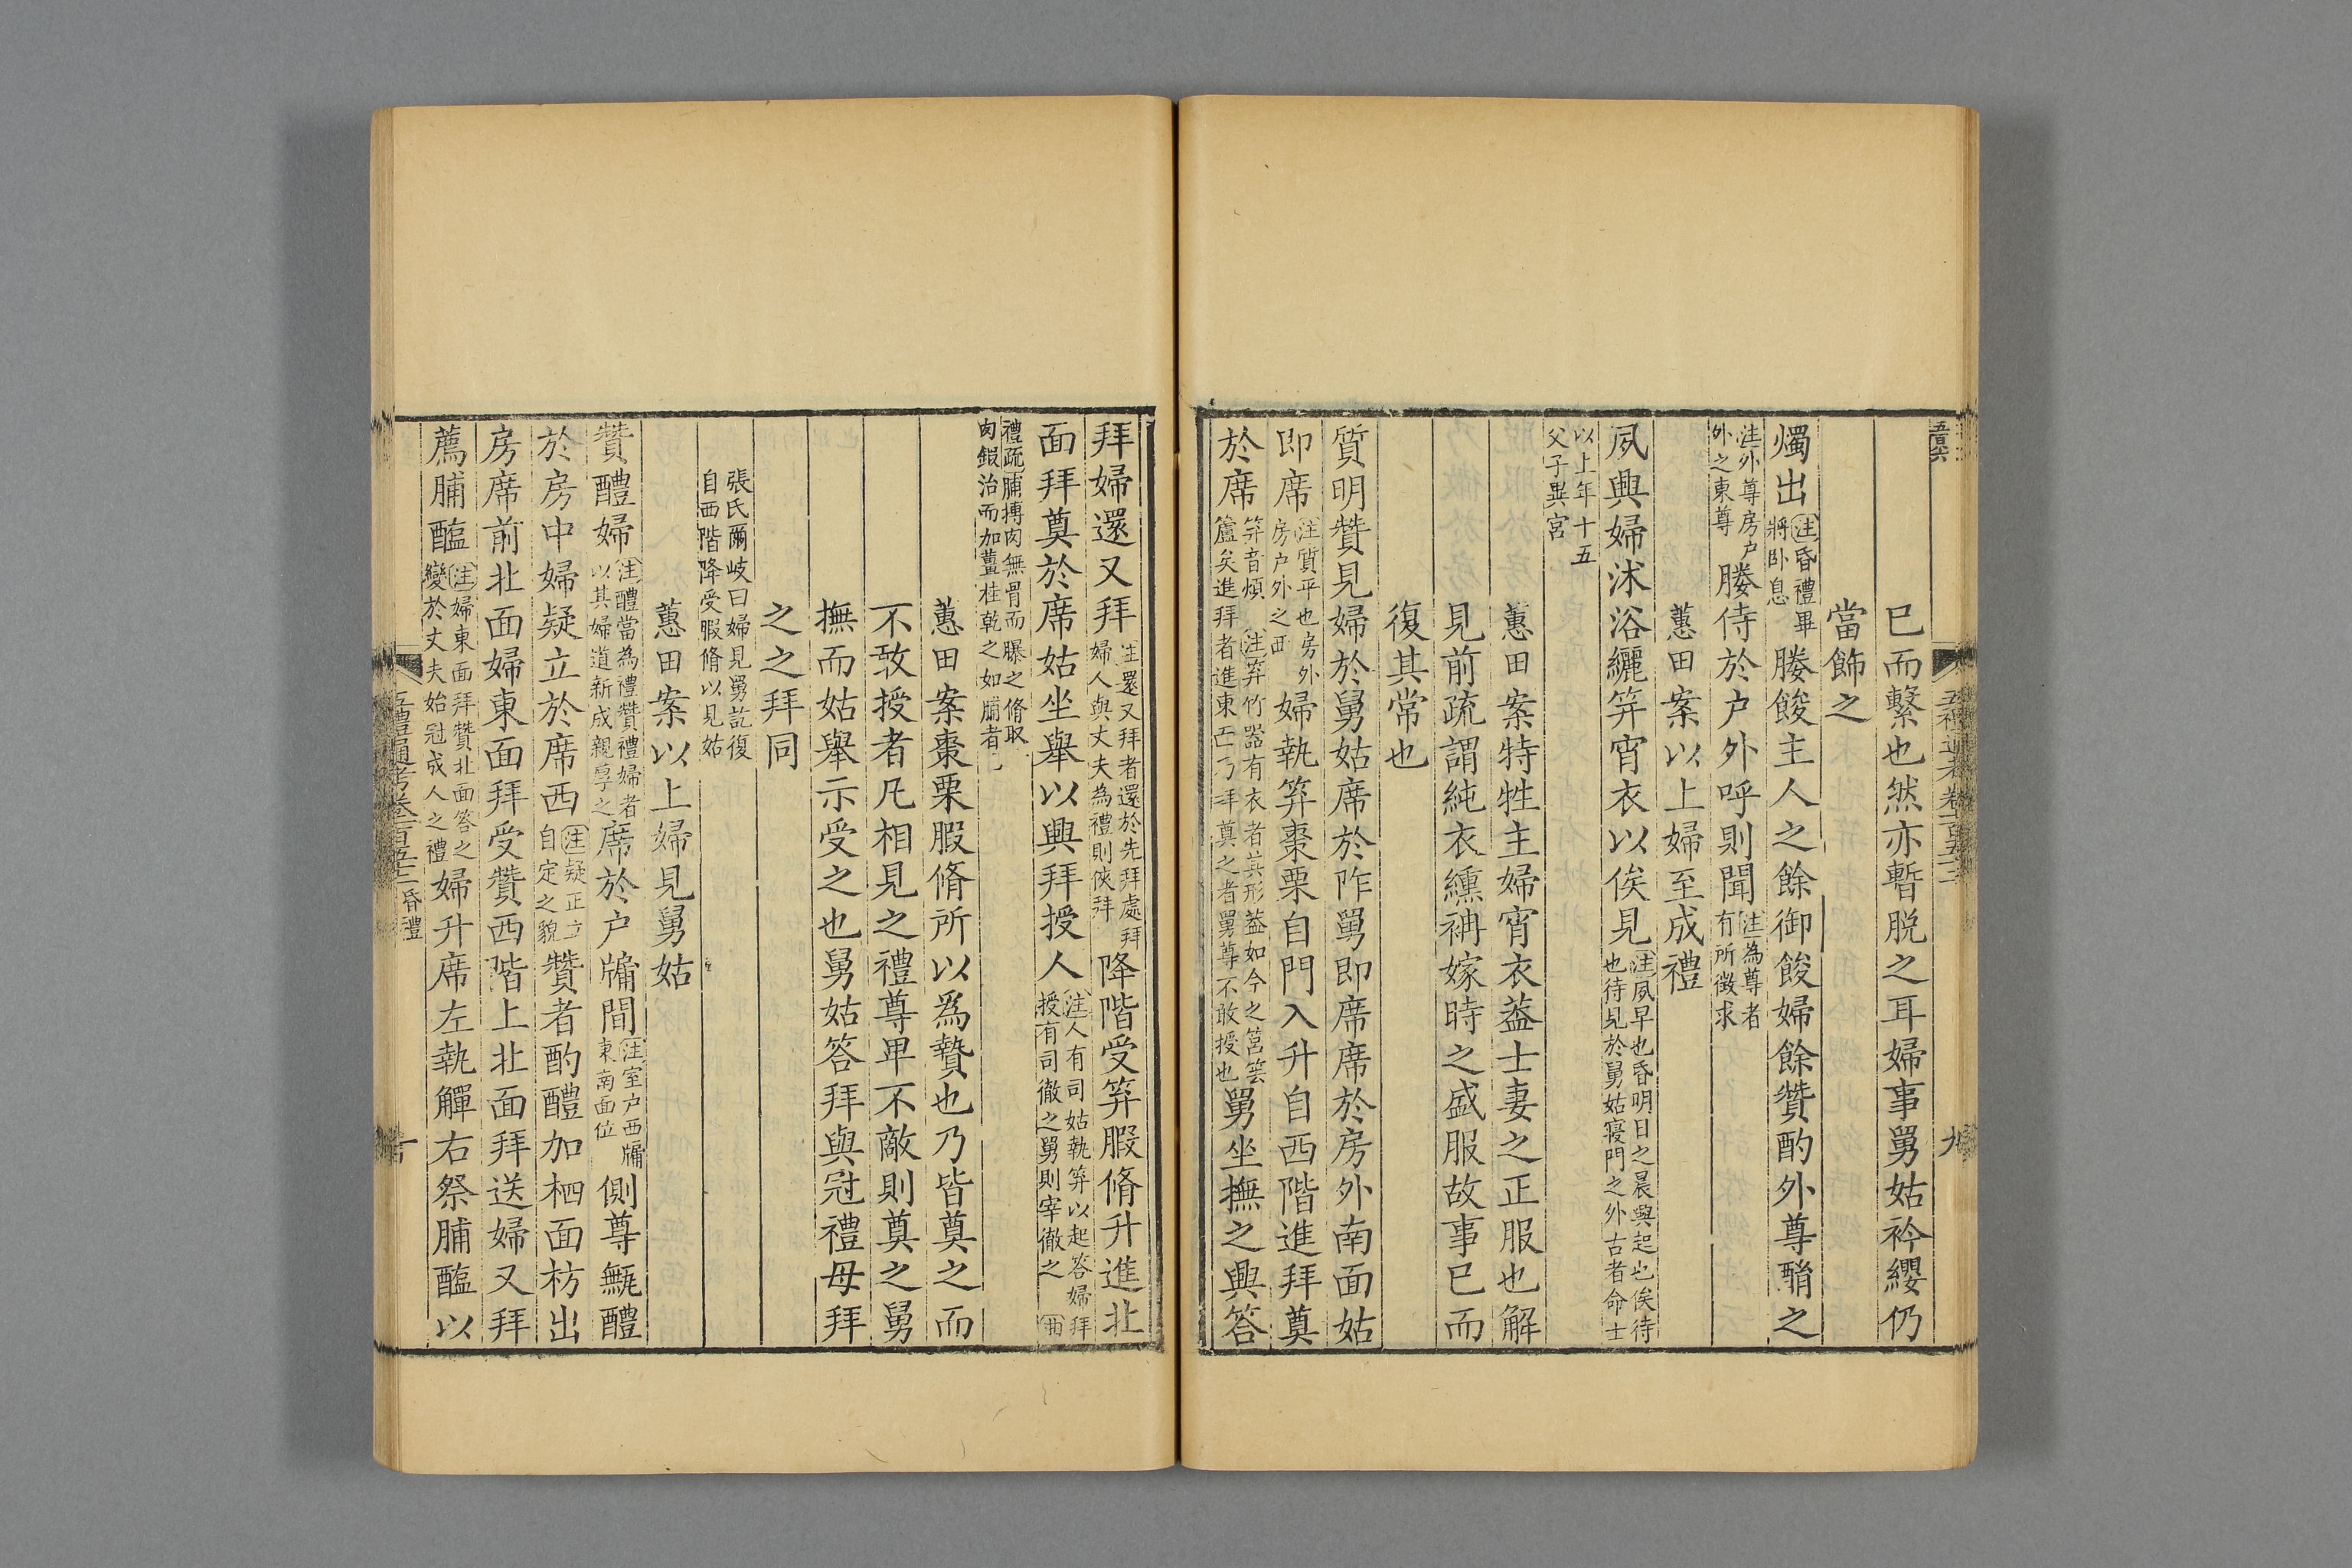 已而繫也然亦暫脱之耳婦事舅姑衿纓仍
當飾之
燭出注昏禮畢將卧息媵餕主人之餘御餕婦餘贊酌外尊酳之
注外尊房戶外之東尊媵侍於戶外呼則聞注為尊者有所徵求
蕙田案以上婦至成禮
夙興婦沐浴纚笄宵衣以俟見注夙早也昏明日之晨興起也俟待也待見於舅姑寢門之外古者命士
以上年十五父子異宮
蕙田案特牲主婦宵衣葢士妻之正服也解
見前疏謂純衣纁袡嫁時之盛服故事已而
復其常也
質明贊見婦於舅姑席於阼舅即席席於房外南面姑
即席注質平也房外房戶外之西婦執笲棗栗自門入升自西階進拜奠
於席笲音煩 注笲竹器有衣者其形葢如今之筥𥬔籚矣進拜者進東面乃拜奠之者舅尊不敢授也舅坐撫之興答
拜婦還又拜注還又拜者還於先拜處拜婦人與丈夫為禮則俠拜降階受笲腶脩升進北
面拜奠於席姑坐舉以興拜授人注人有司姑執笲以起答婦拜授有司徹之舅則宰徹之
禮疏脯搏肉無骨而曝之脩取肉鍜治而加薑桂乾之如脯者
蕙田案棗栗腶脩所以爲贄也乃皆奠之而
不敢授者凡相見之禮尊卑不敵則奠之舅
撫而姑舉示受之也舅姑答拜與冠禮母拜
之之拜同
張氏爾岐曰婦見舅訖復自西階降受腶脩以見姑
蕙田案以上婦見舅姑
贊醴婦注醴當為禮贊禮婦者以其婦道新成親厚之席於戶牖間注室戶西牖東南面位側尊甒醴
於房中婦疑立於席西注疑正立自定之貌贊者酌醴加柶面枋出
房席前北面婦東面拜受贊西階上北面拜送婦又拜
薦脯醢注婦東面拜贊北面答之變於丈夫始冠成人之禮婦升席左執觶右祭脯醢以
五禮通考卷一百五十二 昏禮